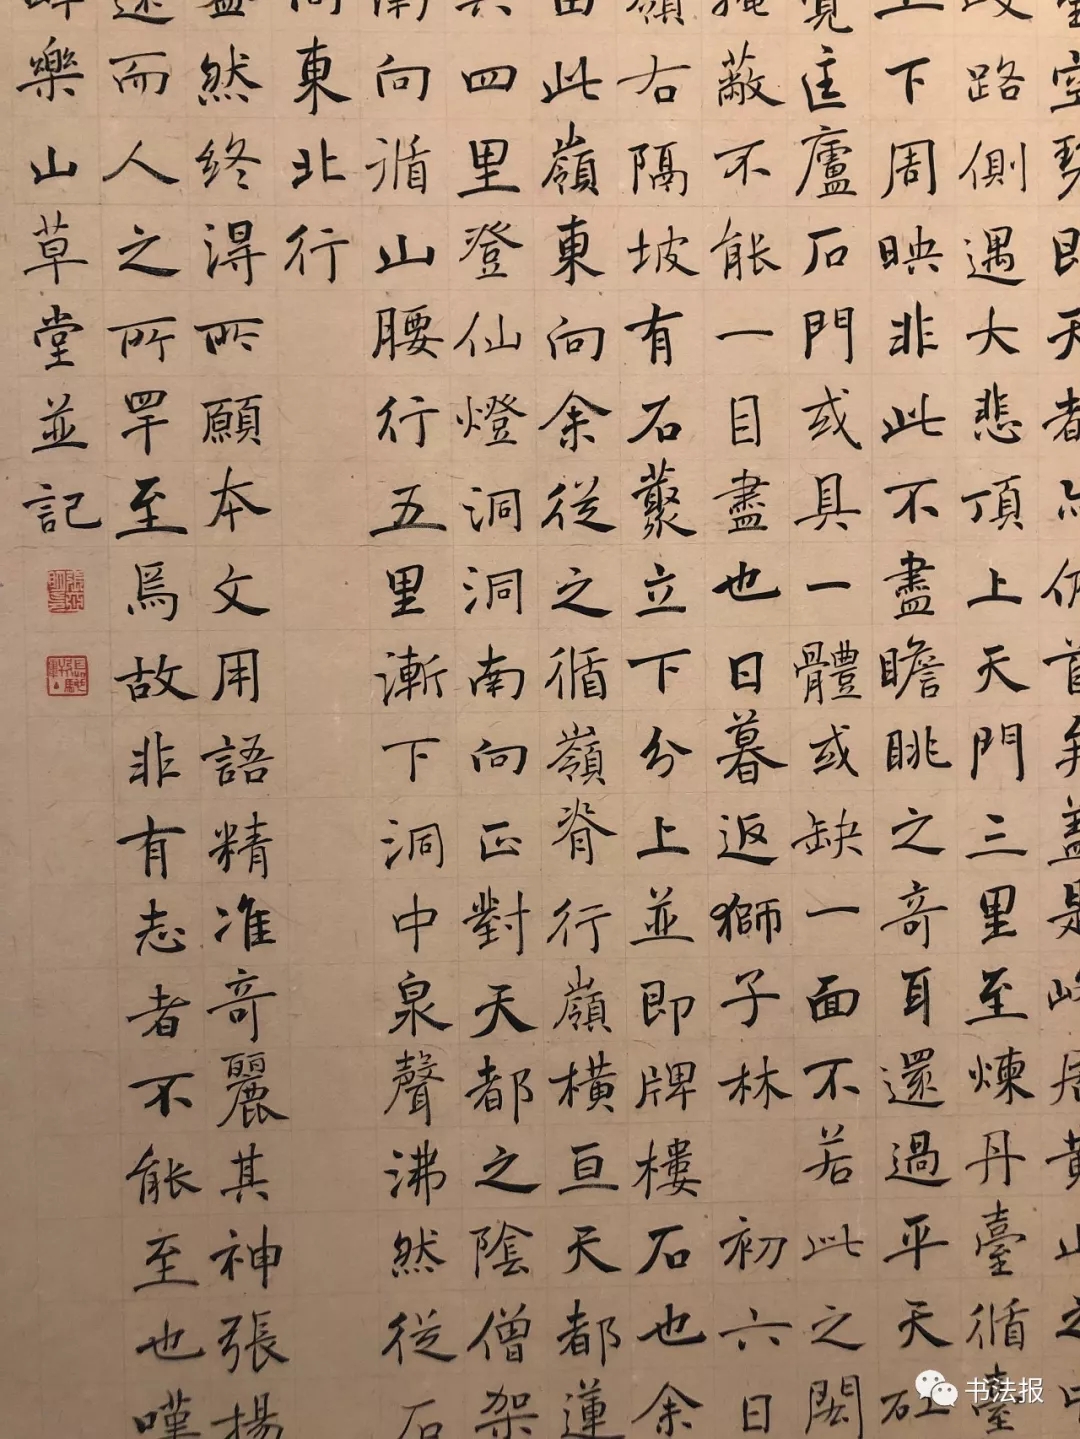 即天者亦俯首矣蓋是峰居黃山之中
路側遇大悲頂上天門三里至煉丹臺循臺
上下周映非此不盡瞻眺之奇耳還過平天矼
覽匡廬石門或具一體或缺一面不若此之閎
掩蔽不能一目盡也日暮返獅子林 初六日
嶺右隔坡有石叢立下分上並即牌樓石也余
由此嶺東向余從之循嶺脊行嶺橫亘天都蓮
四里登仙燈洞洞南向正對天都之陰僧架
南向循山腰行五里漸下洞中泉聲沸然從石
向東北行
然終得所願本文用語精准奇麗其神張揚
而人之所罕至焉故非有志者不能至也嘆
樂山草堂並記
书法报